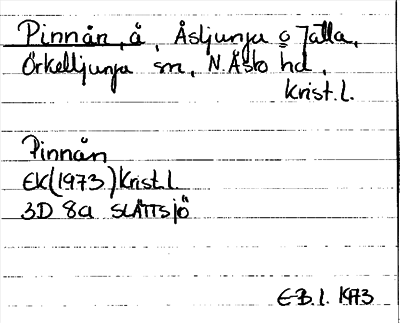 Pinnån, å, Åsljunga o Jälla,
Örkelljunga sn, N. Åsbo hd,
Krist.l.
Pinnån
EK(1973) Krist.l.
3D 8a SLÄTTSJÖ
E-B.l. 1973